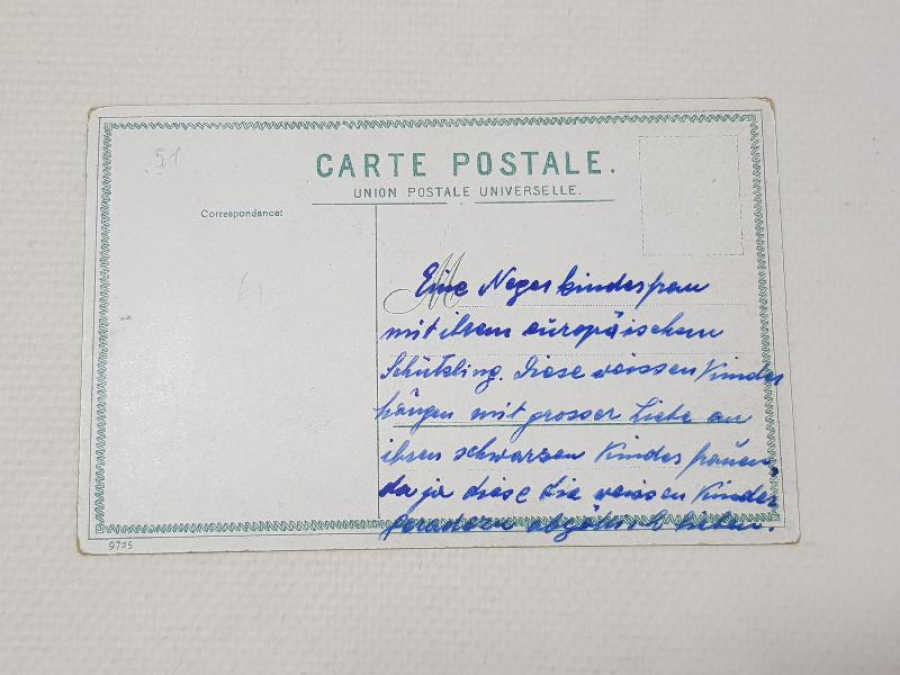 51
CARTE POSTALE.
UNION POSTALE UNIVERSELLE.
Correspondance:
M
Eine Negerkindesfrau
mit ihrem europäischem
Schützling. Diese weissen Kinder
hängen mit grosser Liebe an
ihren schwarzen Kindesfrauen,
da ja diese die weissen Kinder
geradezu abgöttisch lieben.
9725